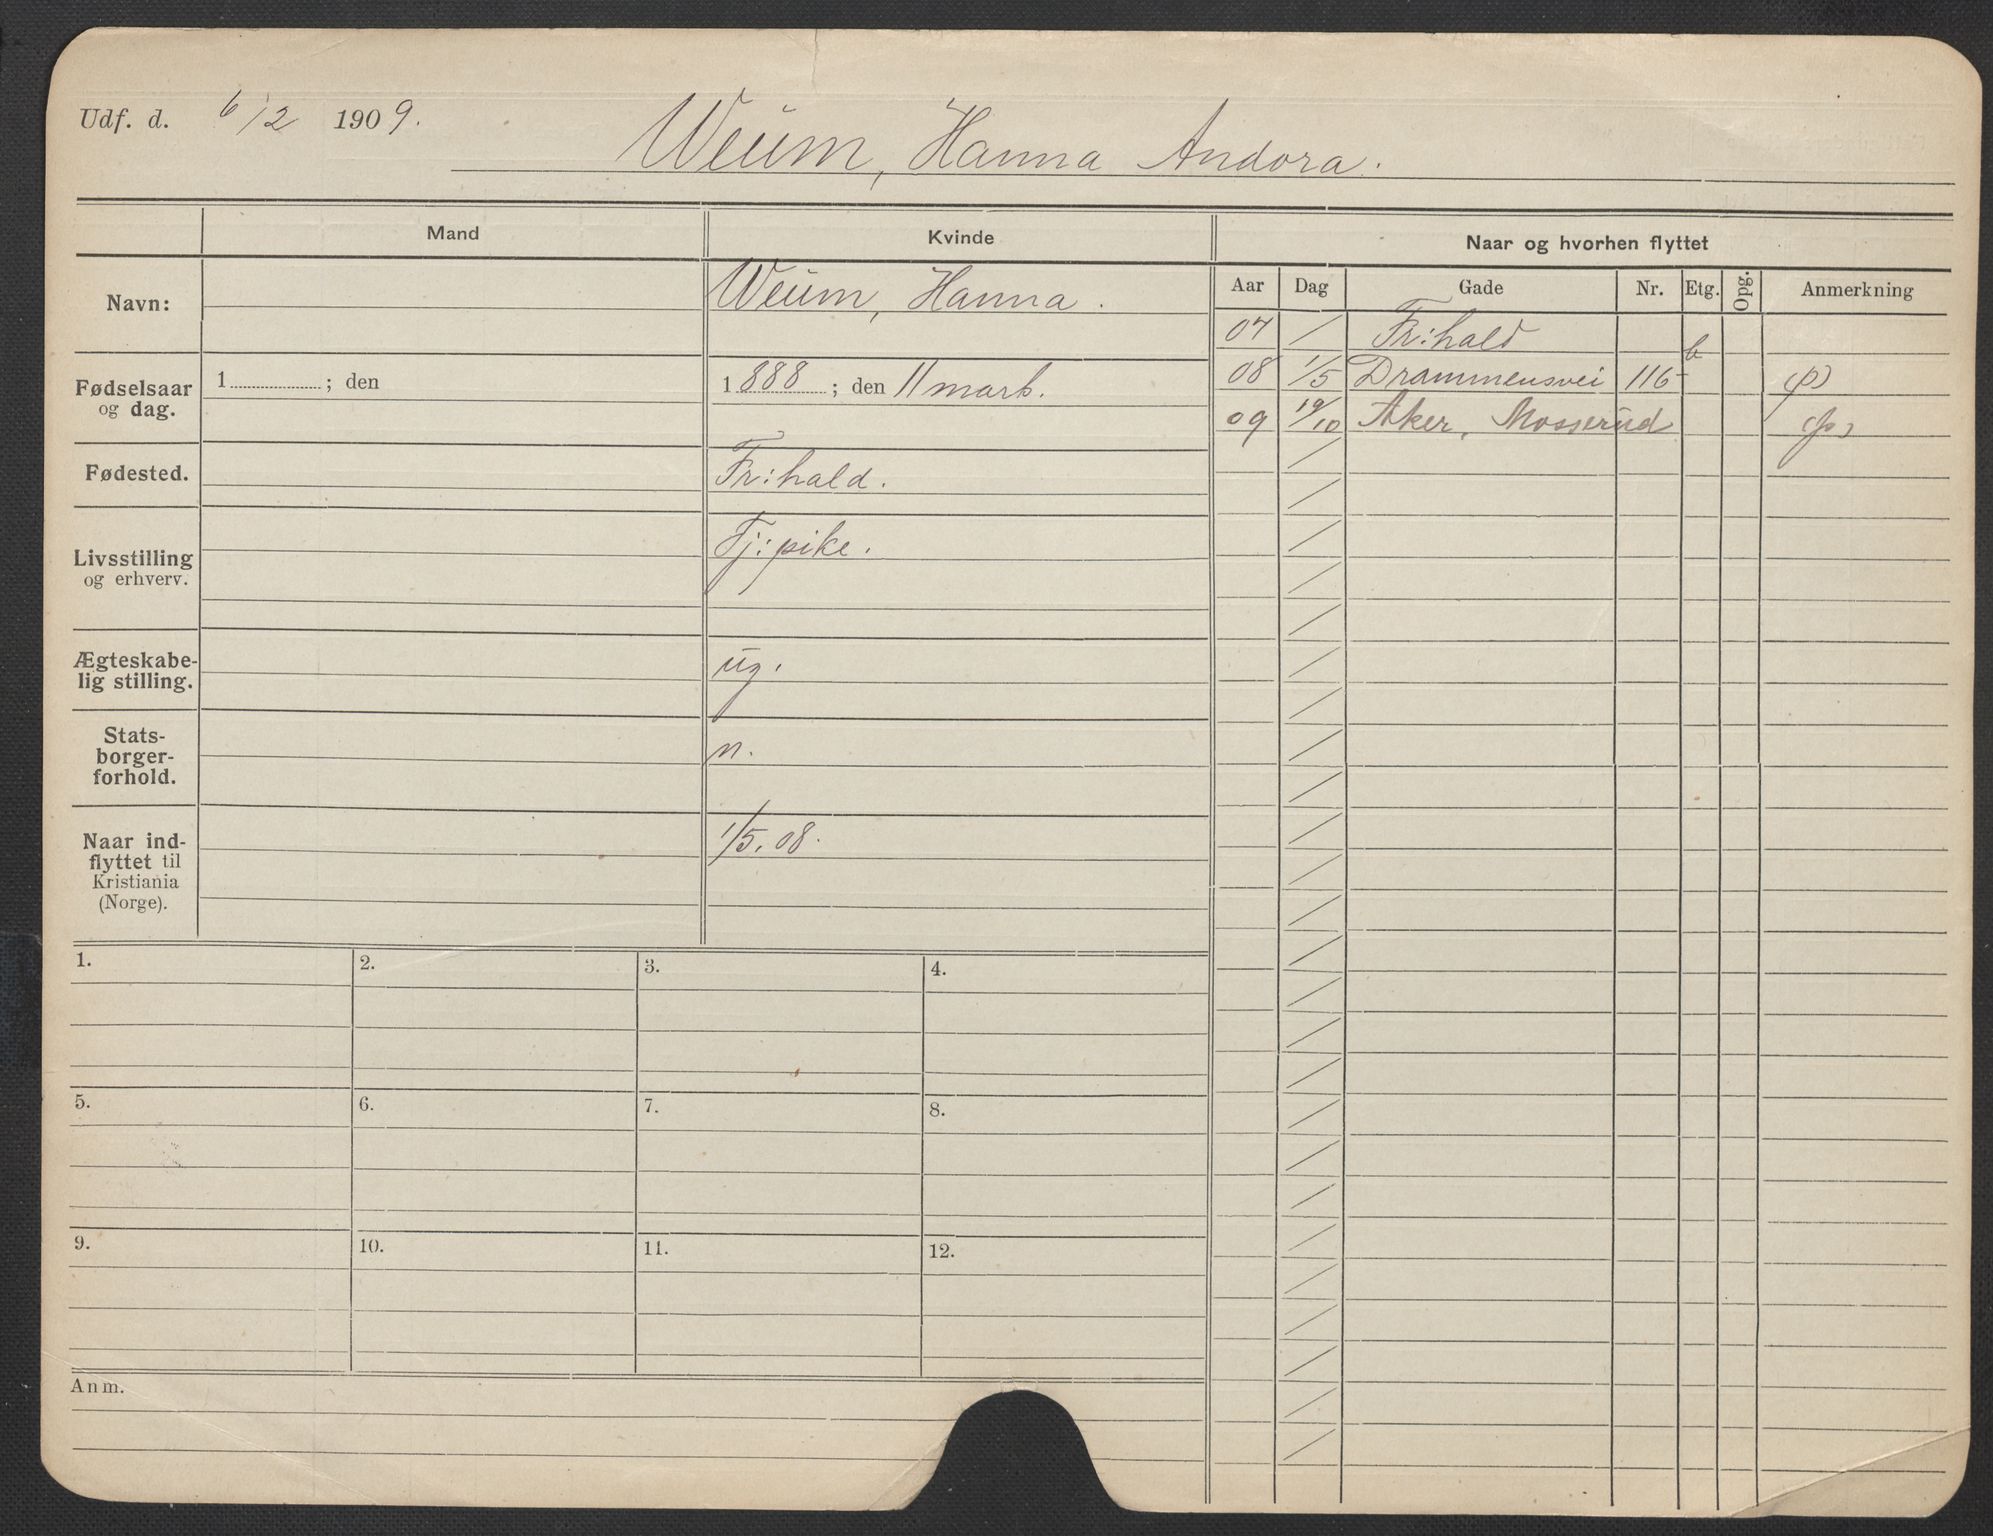 Udf. d. 6/12 1909.
Weum, Hanna Andora.
Mand
Kvinde
Naar og hvorhen flyttet
Navn:
Weum, Hanna.
Aar
Dag
Gade
Nr.
Etg.
Opg.
Anmerkning
07 / Fr:hald
Fødselsaar
og dag.
1 ; den
1888 ; den 11 marts.
08 1/5 Drammensvei 116 b (p)
09 19/10 Aker, Mosserud (p)
Fødested.
Fr:hald.
Livsstilling
og erhverv.
Tj:pike.
Ægteskabe-
lig stilling.
ug.
Stats-
borger-
forhold.
n.
Naar ind-
flyttet til
Kristiania
(Norge).
1/5.08.
1.
2.
3.
4.
5.
6.
7.
8.
9.
10.
11.
12.
Anm.